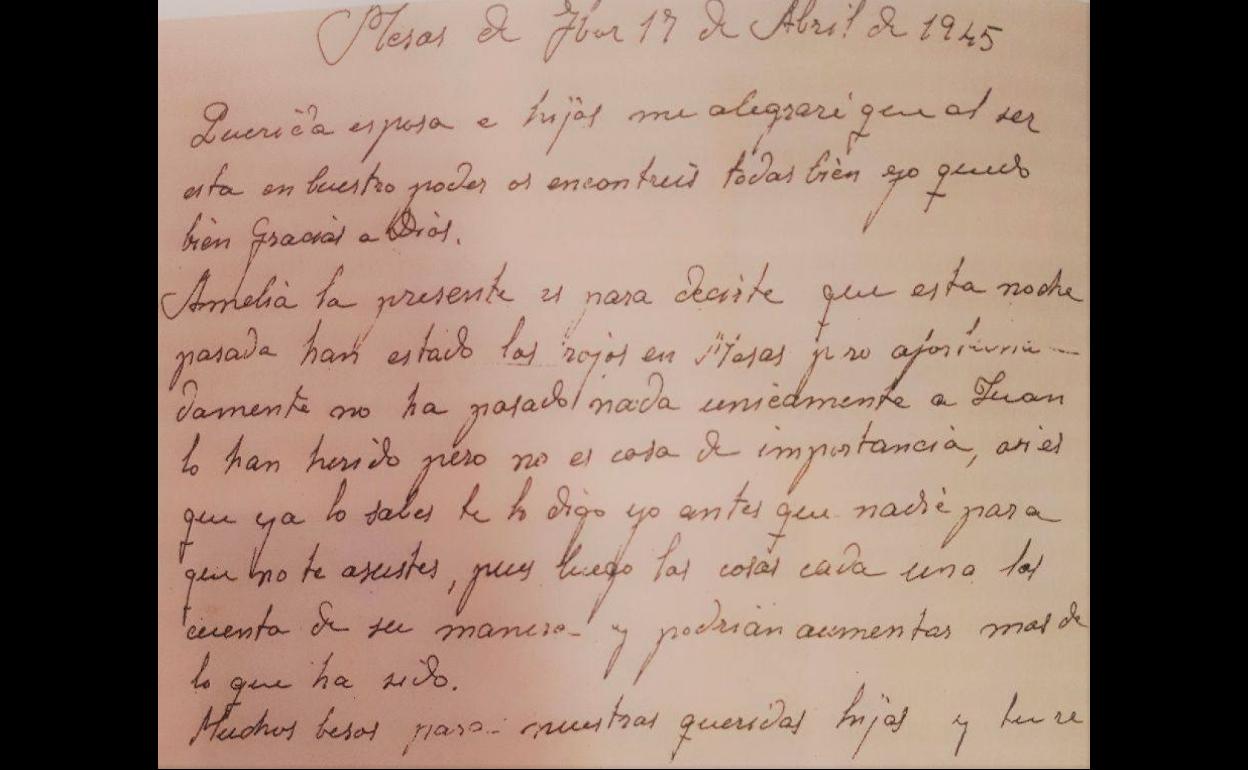 Mesas de Ibor 17 de Abril de 1945
Querida esposa e hijas me alegraré que al ser
esta en buestro poder os encontreis todas bien yo quedo
bien Gracias a Dios.
Amelia la presente es para decirte que esta noche
pasada han estado los rojos en Mesas pero afortuna-
damente no ha pasado nada unicamente a Juan
lo han herido pero no es cosa de importancia, asi es
que ya lo sabes te lo digo yo antes que nadie para
que no te asustes, pues luego las cosas cada uno las
cuenta de su manera y podrian aumentar mas de
lo que ha sido.
Muchos besos para nuestras queridas hijas y tu re